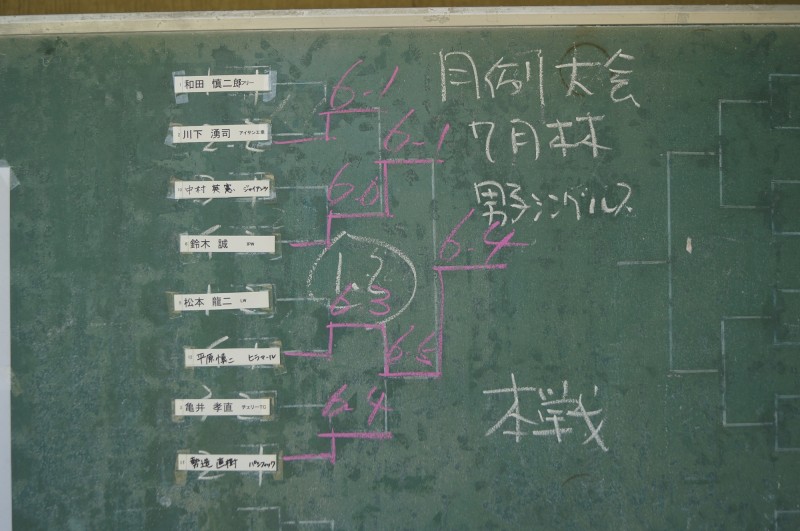 月例大会
7月杯
男子シングルス
和田 慎二郎 フリー
川下 湧司
中村 英憲 ジャイアンツ
鈴木 誠
松本 龍二
平原慎二
亀井 孝直 チェリーTC
直樹 パシフィック
6-1
6-1
6-0
6-4
1.2
6-3
6-5
6-4
本戦